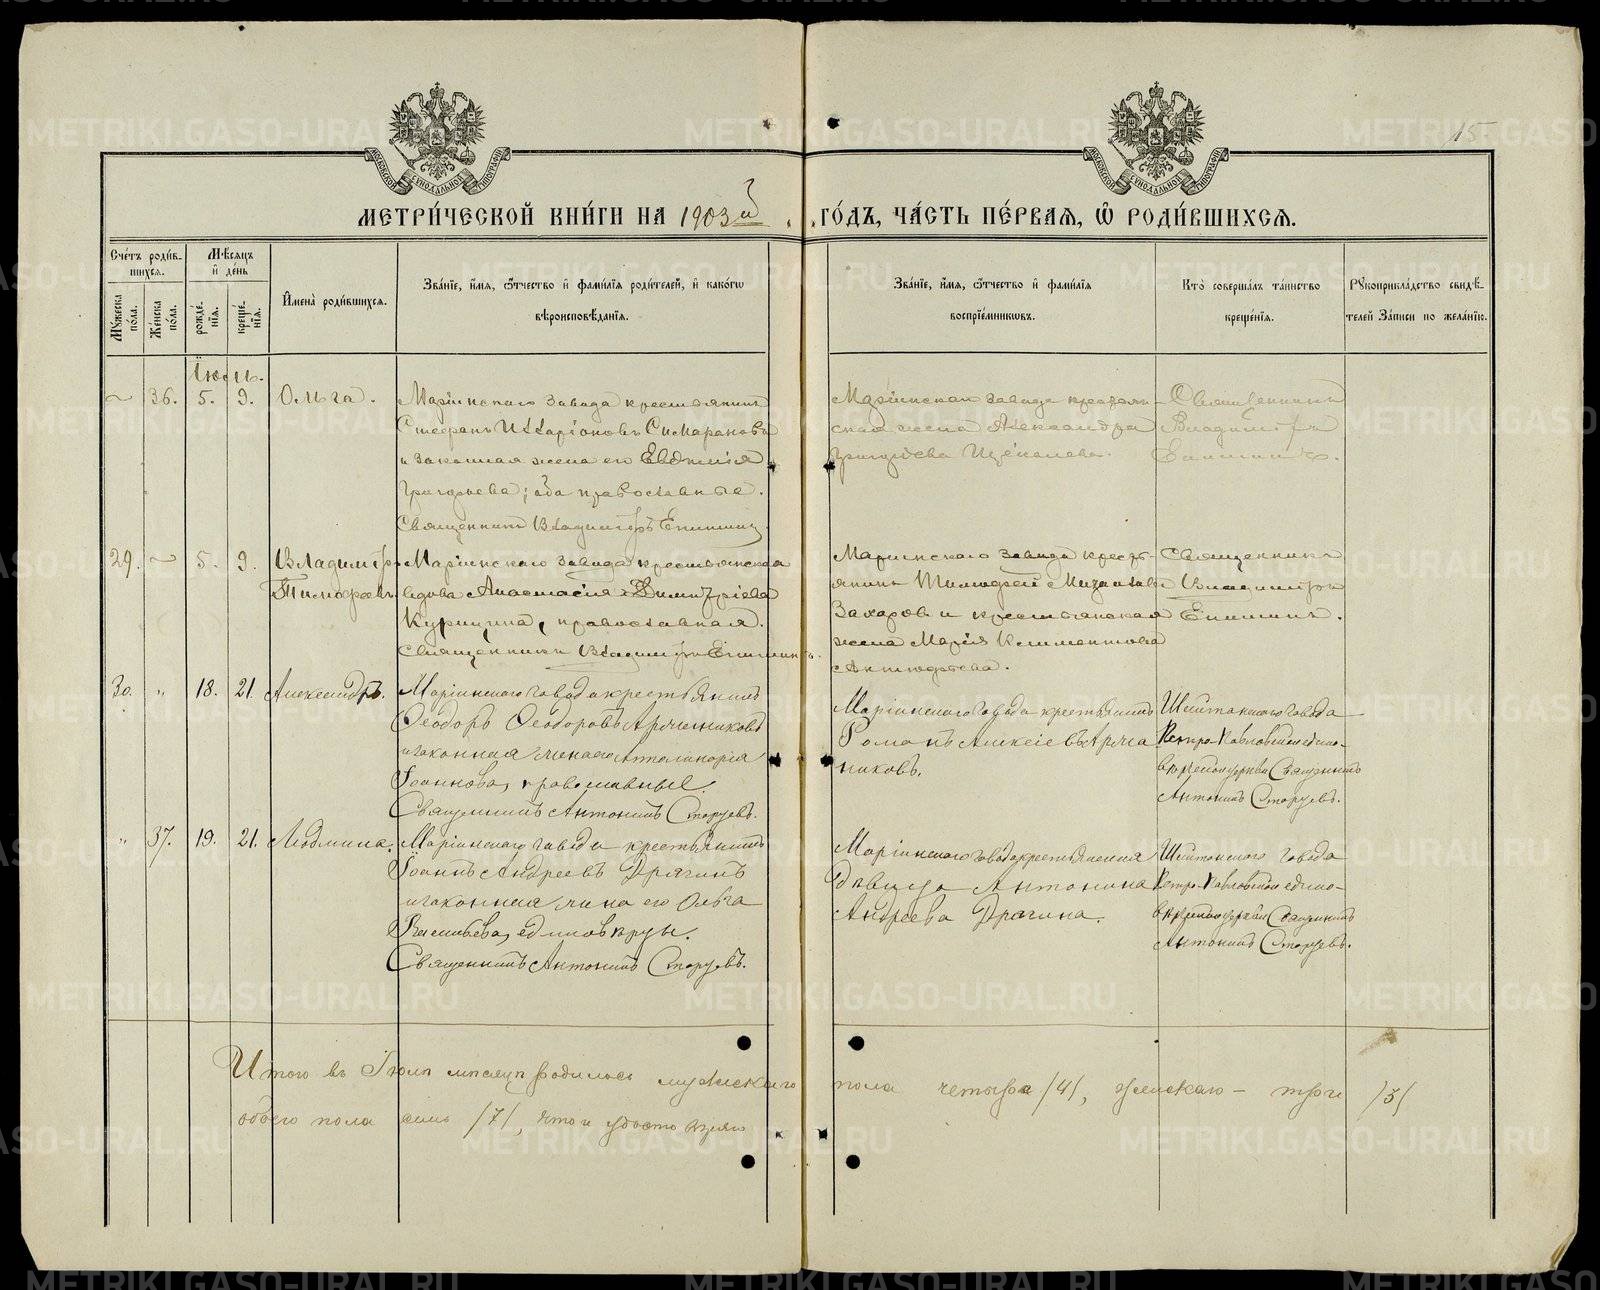 15
МОСКОВСКОЙ СѴНОДАЛЬНОЙ ТИПОГРАФІИ
МОСКОВСКОЙ СѴНОДАЛЬНОЙ ТИПОГРАФІИ
МЕТРИ́ЧЕСКОЙ КНИ́ГИ НА 1903й ГО́ДЪ, ЧА́СТЬ ПЕ́РВАѦ, Ѡ҆ РОДИ́ВШИХСѦ.
Сче́тъ роди́в-
шихся.
Му́жеска по́ла.
Же́нска по́ла.
Мѣ́сяцъ
и҆ де́нь
рожде́нїя.
креще́нїя.
И҆мена̀ роди́вшихся.
Зва́нїе, и҆́мя, ѻ҆́тчество и҆ фами́лїя роди́телей, и҆ како́гѡ
вѣроисповѣ́данїя.
Зва́нїе, и҆́мя, ѻ҆́тчество и҆ фами́лїя
воспрїе́мникѡвъ.
Кто̀ соверша́лъ та́инство
креще́нїя.
Рꙋкоприкла́дство свидѣ́-
телей за́писи по жела́нїю.
Іюль.
~ 36. 5. 9. Ольга.
Маріинскаго завода крестьянинъ
Стефанъ Илларіоновъ
и законная жена его Евдокія
Григорьева; оба православные.
Священникъ Владиміръ Епишинъ
Маріинскаго завода крестьян-
ская жена Александра
Григорьева
Священникъ
Владиміръ
Епишинъ.
29. ~ 5. 9. Владиміръ
Тимофеевъ
Маріинскаго завода крестьянская
вдова Анастасія Димитріева
Курицына, православная.
Священникъ Владиміръ Епишинъ.
Маріинскаго завода кресть-
янинъ Тимофей Михаиловъ
Захаров и крестьянская
жена Марія Климентова
Священникъ
Владиміръ
Епишинъ.
30. „ 18. 21. Александръ.
Маріинскаго завода крестьянинъ
Ѳеодоръ Ѳеодоровъ Арличниковъ
и законная жена его Апполинарія
Іоаннова, православные.
Священникъ Антонинъ
Маріинскаго завода крестьянинъ
Романъ Алексіевъ
никовъ.
Шайтанскаго завода
Петро-Павловской едино-
вѣрческой церкви Священникъ
Антонинъ
„ 37. 19. 21. Людмила.
Маріинскаго завода крестьянинъ
Іоаннъ Андреевъ Дрягинъ
и законная жена его Ольга
Васильева, единовѣрцы.
Священникъ Антонинъ
Маріинскаго завода крестьянская
дѣвица Антонина
Андреева Дрягина.
Шайтанскаго завода
Петро-Павловской едино-
вѣрческой церкви Священникъ
Антонинъ
Итого въ Іюлѣ мѣсяцѣ родилось мужескаго пола четыре /4/, женскаго – три /3/
обоего пола семь /7/, что и удостовѣряю
METRIKI.GASO-URAL.RU